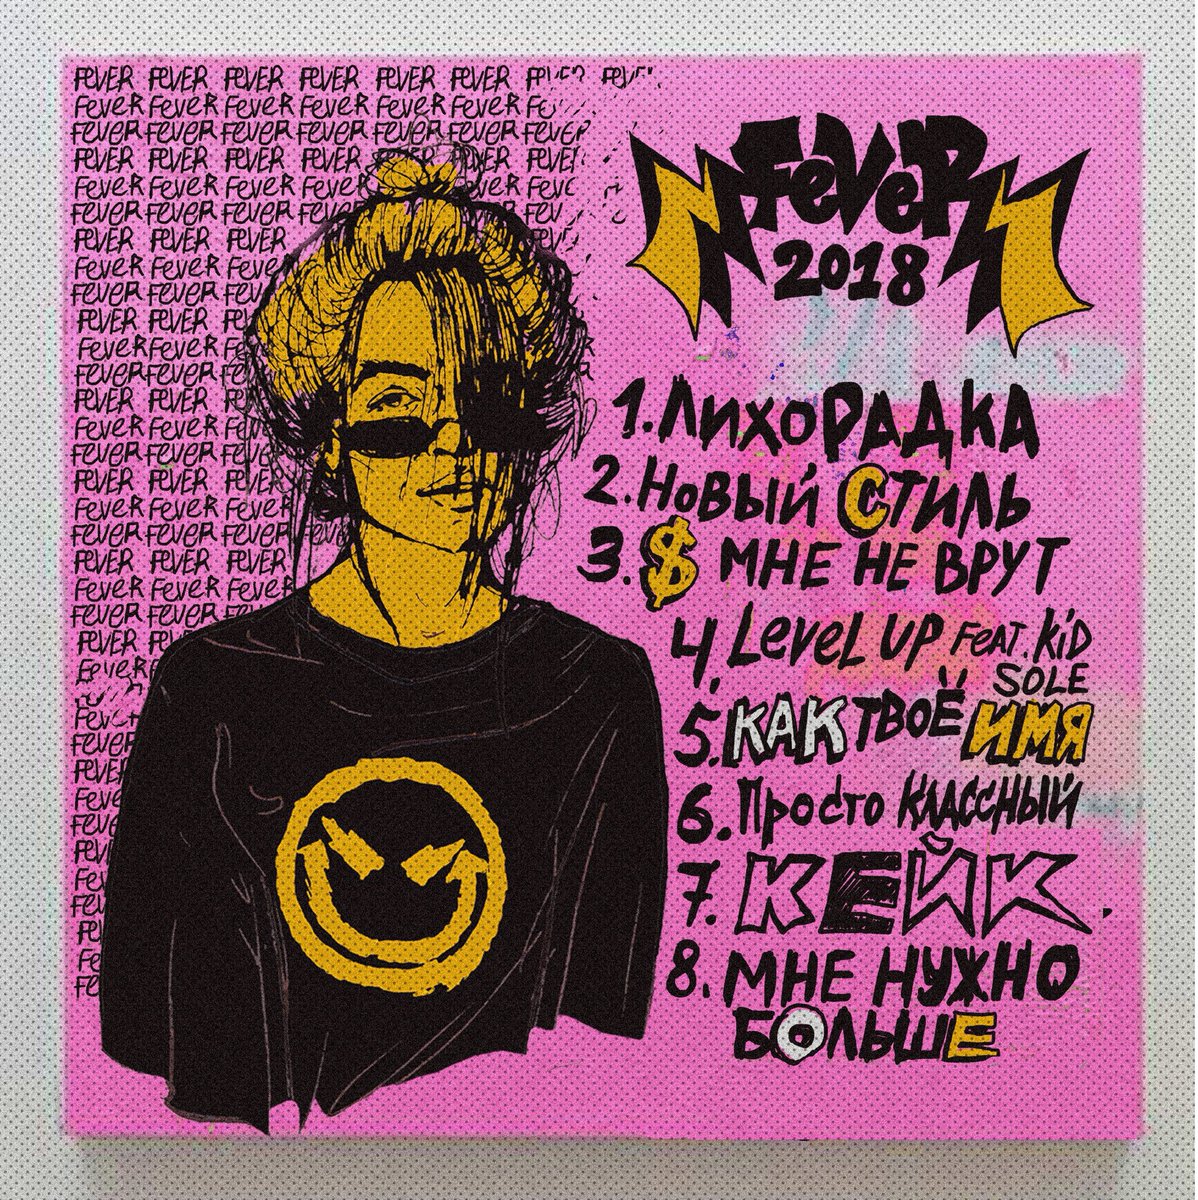 FEVER FEVER FEVER FEVER FEVER FEVER
FeveR FeveR FeveR FeveR FeveR FeveR
FeveR FeveR FeveR FeveR FeveR FeveR FeveR
FEVER FEVER FEVER FEVER
FeveR FeveR FeveR FeveR
FeveR FeveR FeveR
FEVER FEVER FEVER
FeveR FeveR FeveR
FeveR FeveR
FEVER FEVER
FeveR FeveR
FeveR FeveR
FEVER FEVER
FeveR FeveR
FeveR FeveR FeveR
FEVER FEVER FEVER
FeveR FeveR FeveR
FeveR FeveR FeveR
FEVER FEVER FEVER
FeveR FeveR FeveR
FeveR FeveR
FEVER
FeveR
FEVER
FeveR
2018
1. Лихорадка
2. Новый стиль
3. $ мне не врут
4. Level UP feat. Kid
Sole
5. Как твоё имя
6. Просто классный
7. Кейк
8. Мне нужно
больше